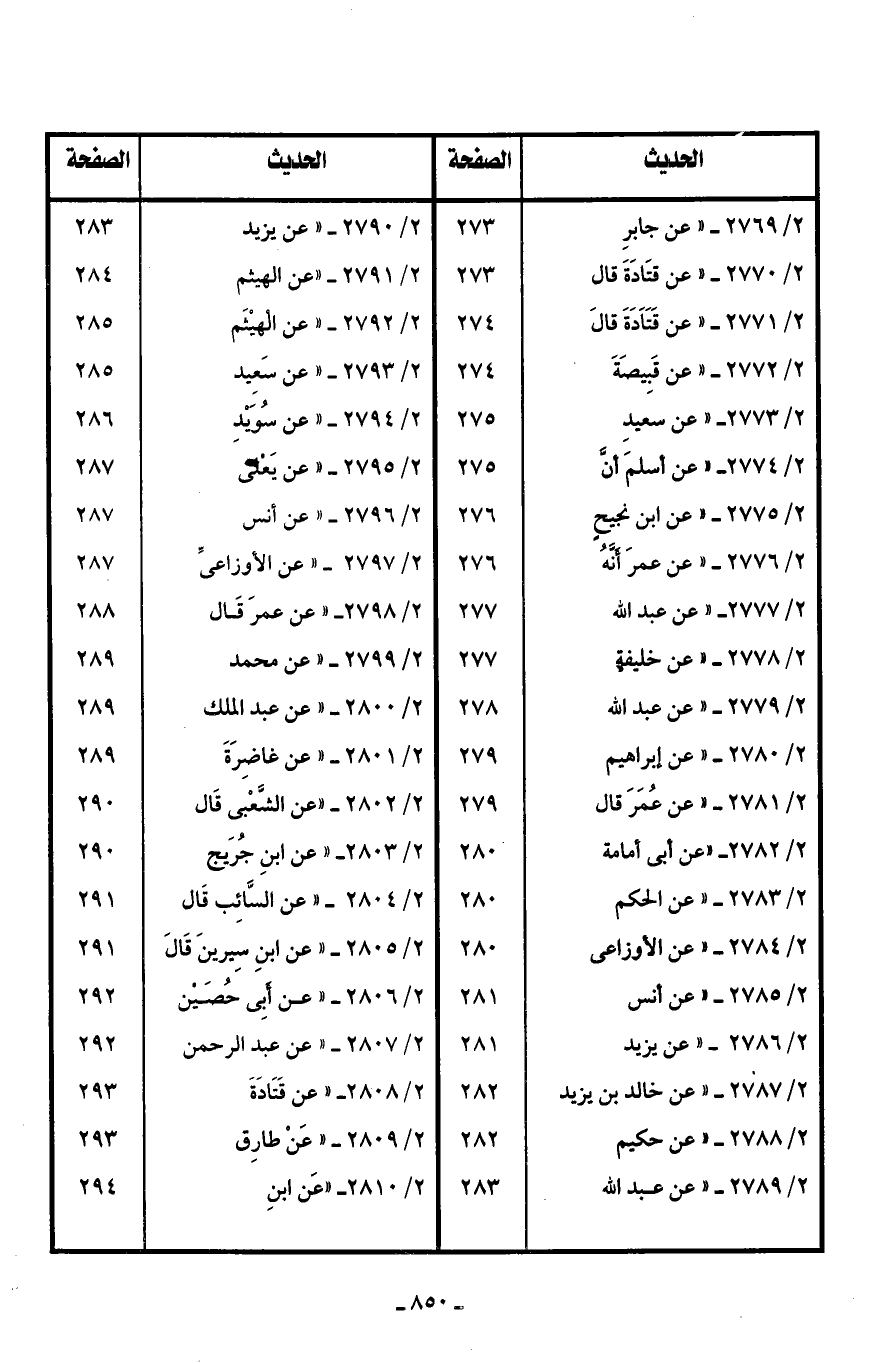 الحديث الصفحة الحديث الصفحة
٢/ ٢٧٦٩ ـ « عن جابرِ ٢٧٣ ٢/ ٢٧٩٠ ـ « عن يزيد ٢٨٣
٢/ ٢٧٧٠ ـ « عن قتَادَةَ قال ٢٧٣ ٢/ ٢٧٩١ ـ «عن الهيثم ٢٨٤
٢/ ٢٧٧١ ـ « عن قَتَادَةَ قالَ ٢٧٤ ٢/ ٢٧٩٢ ـ « عن الْهيْثَم ٢٨٥
٢/ ٢٧٧٢ ـ « عن قَبِيصَةَ ٢٧٤ ٢/ ٢٧٩٣ ـ « عن سَعِيد ٢٨٥
٢/ ٢٧٧٣ـ « عن سعيدِ ٢٧٥ ٢/ ٢٧٩٤ ـ « عن سُوَيْدِ ٢٨٦
٢/ ٢٧٧٤ـ « عن أسلمَ أنَّ ٢٧٥ ٢/ ٢٧٩٥ ـ « عن يَعْلَى ٢٨٧
٢/ ٢٧٧٥ ـ « عن ابن نجيحٍ ٢٧٦ ٢/ ٢٧٩٦ ـ « عن أنس ٢٨٧
٢/ ٢٧٧٦ ـ « عن عمرَ أَنَّهُ ٢٧٦ ٢/ ٢٧٩٧ ـ « عن الأوزاعىِّ ٢٨٧
٢/ ٢٧٧٧ـ « عن عبد الله ٢٧٧ ٢/ ٢٧٩٨ـ « عن عمرَ قَـال ٢٨٨
٢/ ٢٧٧٨ ـ « عن خليفةٍ ٢٧٧ ٢/ ٢٧٩٩ ـ « عن محمد ٢٨٩
٢/ ٢٧٧٩ ـ « عن عبد الله ٢٧٨ ٢/ ٢٨٠٠ ـ « عن عبد الملك ٢٨٩
٢/ ٢٧٨٠ ـ « عن إبراهيم ٢٧٩ ٢/ ٢٨٠١ ـ « عن غاضِرَةَ ٢٨٩
٢/ ٢٧٨١ ـ « عن عُمَرَ قال ٢٧٩ ٢/ ٢٨٠٢ ـ «عن الشَّعْبى قَال ٢٩٠
٢/ ٢٧٨٢ـ «عن أبى أمامة ٢٨٠ ٢/ ٢٨٠٣ـ « عن ابنِ جُرَيج ٢٩٠
٢/ ٢٧٨٣ ـ « عن الحكم ٢٨٠ ٢/ ٢٨٠٤ ـ « عن السَّائِب قَال ٢٩١
٢/ ٢٧٨٤ ـ « عن الأوزاعى ٢٨٠ ٢/ ٢٨٠٥ ـ « عن ابنِ سِيرينَ قَالَ ٢٩١
٢/ ٢٧٨٥ ـ « عن أنس ٢٨١ ٢/ ٢٨٠٦ ـ « عـن أَبِى حُصَـيْن ٢٩٢
٢/ ٢٧٨٦ ـ « عن يزيد ٢٨١ ٢/ ٢٨٠٧ ـ « عن عبد الرحمن ٢٩٢
٢/ ٢٧٨٧ ـ « عن خالد بن يزيد ٢٨٢ ٢/ ٢٨٠٨ـ « عن قَتَادَةَ ٢٩٣
٢/ ٢٧٨٨ ـ « عن حكيم ٢٨٢ ٢/ ٢٨٠٩ ـ « عَنْ طارِق ٢٩٣
٢/ ٢٧٨٩ ـ « عن عـبد الله ٢٨٣ ٢/ ٢٨١٠ـ «عَن ابنِ ٢٩٤
ـ ٨٥٠ ـ